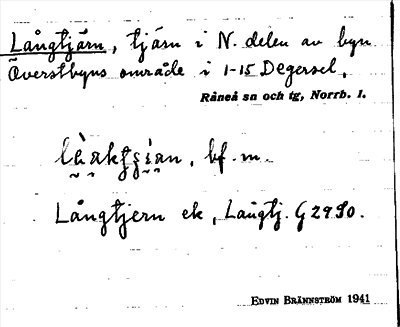 Långtjärn, tjärn i N. delen av byn
Överstbyns område i 1-15 Degersel,
Råneå sn och tg, Norrb. l.
bf. m.
Långtjern ek, Långtj. G 29 SO.
EDVIN BRÄNNSTRÖM 1941